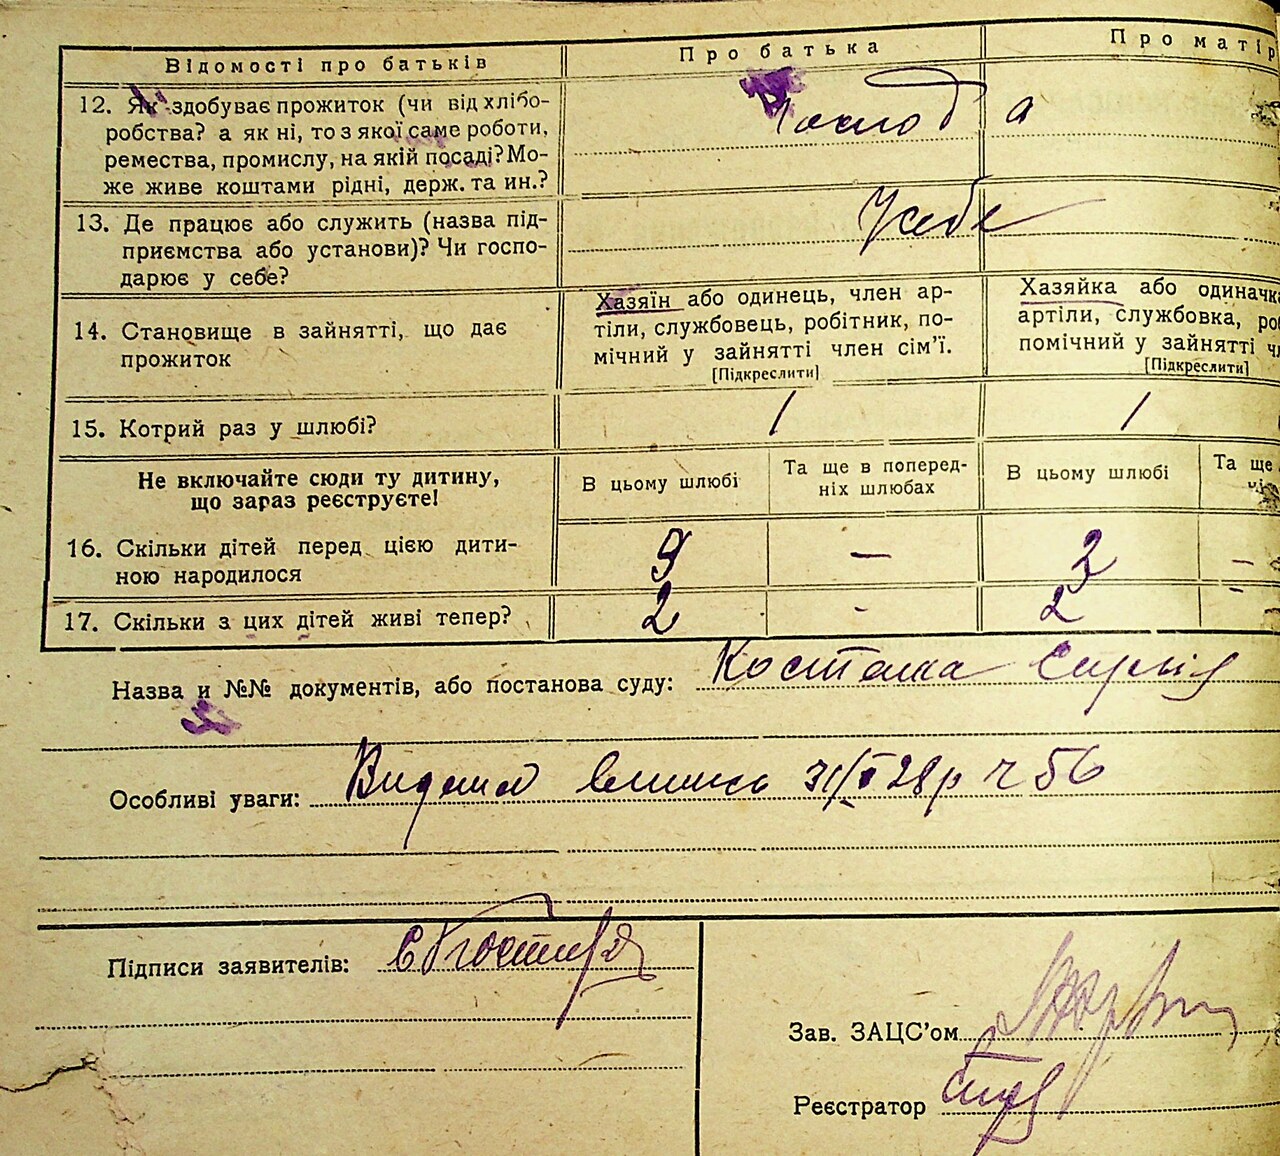 Відомості про батьків
Про батька
Про матір
12. Як здобуває прожиток (чи від хлібо-
робства? а як ні, то з якої саме роботи,
ремества, промислу, на якій посаді? Мо-
же живе коштами рідні, держ. та ин.?
13. Де працює або служить (назва під-
приємства або установи)? Чи госпо-
дарює у себе?
У себе
14. Становище в зайнятті, що дає
прожиток
Хазяїн або одинець, член ар-
тіли, службовець, робітник, по-
мічний у зайнятті член сім’ї.
[Підкреслити]
Хазяйка або одиначка
артіли, службовка, ро
помічний у зайнятті
[Підкреслити]
15. Котрий раз у шлюбі?
1
1
Не включайте сюди ту дитину,
що зараз реєструєте!
В цьому шлюбі
Та ще в поперед-
ніх шлюбах
В цьому шлюбі
Та ще
16. Скільки дітей перед цією дити-
ною народилося
—
—
17. Скільки з цих дітей живі тепер?
2
-
2
-
Назва и №№ документів, або постанова суду:
Особливі уваги: 28р ч 56
Підписи заявителів:
Зав. ЗАЦС’ом
Реєстратор